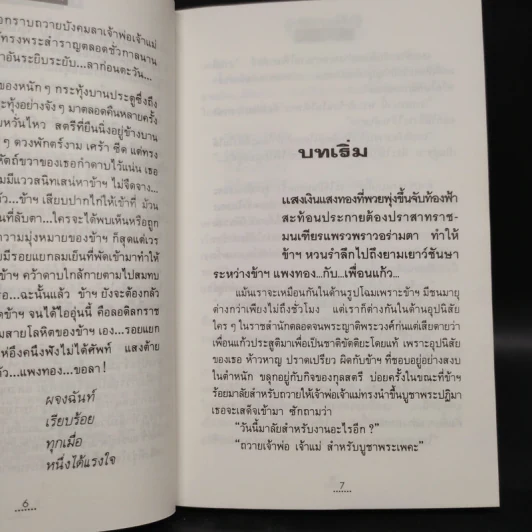 อกราบถวายบังคมลาเจ้าพ่อเจ้าแม่
ทรงพระสำราญตลอดชั่วกาลนาน
าอันระยิบระยับ...ลาก่อนตะวัน...
ของหนักๆ กระทุ้งบานประตูซึ่งถึง
ะทุ้งอย่างจังๆ มาตลอดคืนหลายครั้ง
หวั่นไหว สตรีที่ยืนนิ่งอยู่ข้างบาน
ๆ ดวงพักตร์งาม เศร้า ซีด แต่ทรง
หัตถ์ขวาของเธอกำดาบไว้แน่น เธอ
มีแววสนิทเสน่หาข้าฯ ไม่จืดจาง...
้ว...ข้าฯ เสียบปากไก่ให้เข้าที่ ม้วน
นที่ลับตา...ใครจะได้พบเห็นหรือถูก
ความมุ่งหมายของข้าฯ ก็สุดแต่เวร
มีรอยแยกลมเย็นที่พัดเข้ามาทำให้
ข้าฯ คว้าดาบใกล้กายตามไปสมทบ
...ฉะนั้นแล้ว ข้าฯ ยังจะต้องกลัว
จนได้ไออุ่นนี้ คือลอดิลกราช
มสายโลหิตของข้าฯ เอง...รอยแยก
ห์อึงคนึงฟังไม่ได้ศัพท์ แสงต้าย
้ว...แพงทอง...ขอลา !
ผจงฉันท์
เรียบร้อย
ทุกเมื่อ
หนึ่งได้แรงใจ
6
บทเริ่ม
แสงเงินแสงทองที่พวยพุ่งขึ้นจับท้องฟ้า
สะท้อนประกายต้องปราสาทราช-
มนเทียรแพรวพราวอร่ามตา ทำให้
ข้าฯ หวนรำลึกไปถึงยามเยาว์ชันษา
ระหว่างข้าฯ แพงทอง...กับ...เพื่อนแก้ว...
แม้นเราจะเหมือนกันในด้านรูปโฉมเพราะข้าฯ มีชนมายุ
ต่างกว่าเพียงไม่ถึงชั่วโมง แต่เราก็ต่างกันในด้านอุปนิสัย
ใครๆ ในราชสำนักตลอดจนพระญาติพระวงศ์ก่นแต่เสียดายว่า
เพื่อนแก้วประสูติมาเพื่อเป็นชาติขัตติยะโดยแท้ เพราะอุปนิสัย
ของเธอ ห้าวหาญ ปราดเปรียว ผิดกับข้าฯ ที่ชอบอยู่อย่างสงบ
ในตำหนัก ขลุกอยู่กับกิจของกุลสตรี บ่อยครั้งในขณะที่ข้าฯ
ร้อยมาลัยสำหรับถวายให้เจ้าพ่อเจ้าแม่ทรงนำขึ้นบูชาพระปฏิมา
เธอจะเสด็จเข้ามา ซักถามว่า
“วันนี้มาลัยสำหรับงานอะไรอีก ?”
“ถวายเจ้าพ่อ เจ้าแม่ สำหรับบูชาพระเพคะ”
7